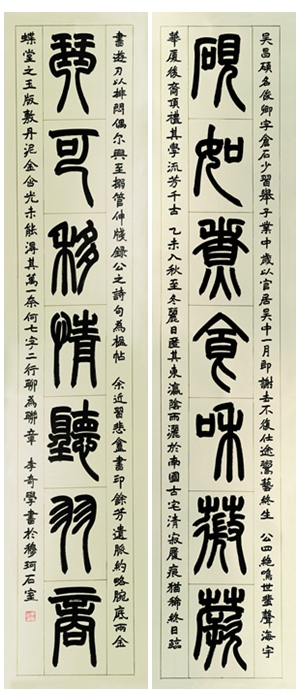 吳昌碩名俊卿字倉石少習舉子業中歲以官居吳中一月即謝去不復仕途鬻藝終生 公四絕鳴世蜚聲海宇
硯如煮食味薇蕨
華厦後裔頂禮其學流芳千古 乙未入秋至冬麗日匿其東瀛陰雨灑於南國古宅清寂屐痕猶稀終日臨
書遊刃以排悶偶尔興至搦管伸牋錄公之詩句為楹帖 余近習悲盦書印餘芳遺脈約略腕底兩金
琴可移情聽羽商
蝶堂之玉版敷丹泥金合光未能淂其萬一奈何七字二行聊為聯章 李奇學書於穆珂石室